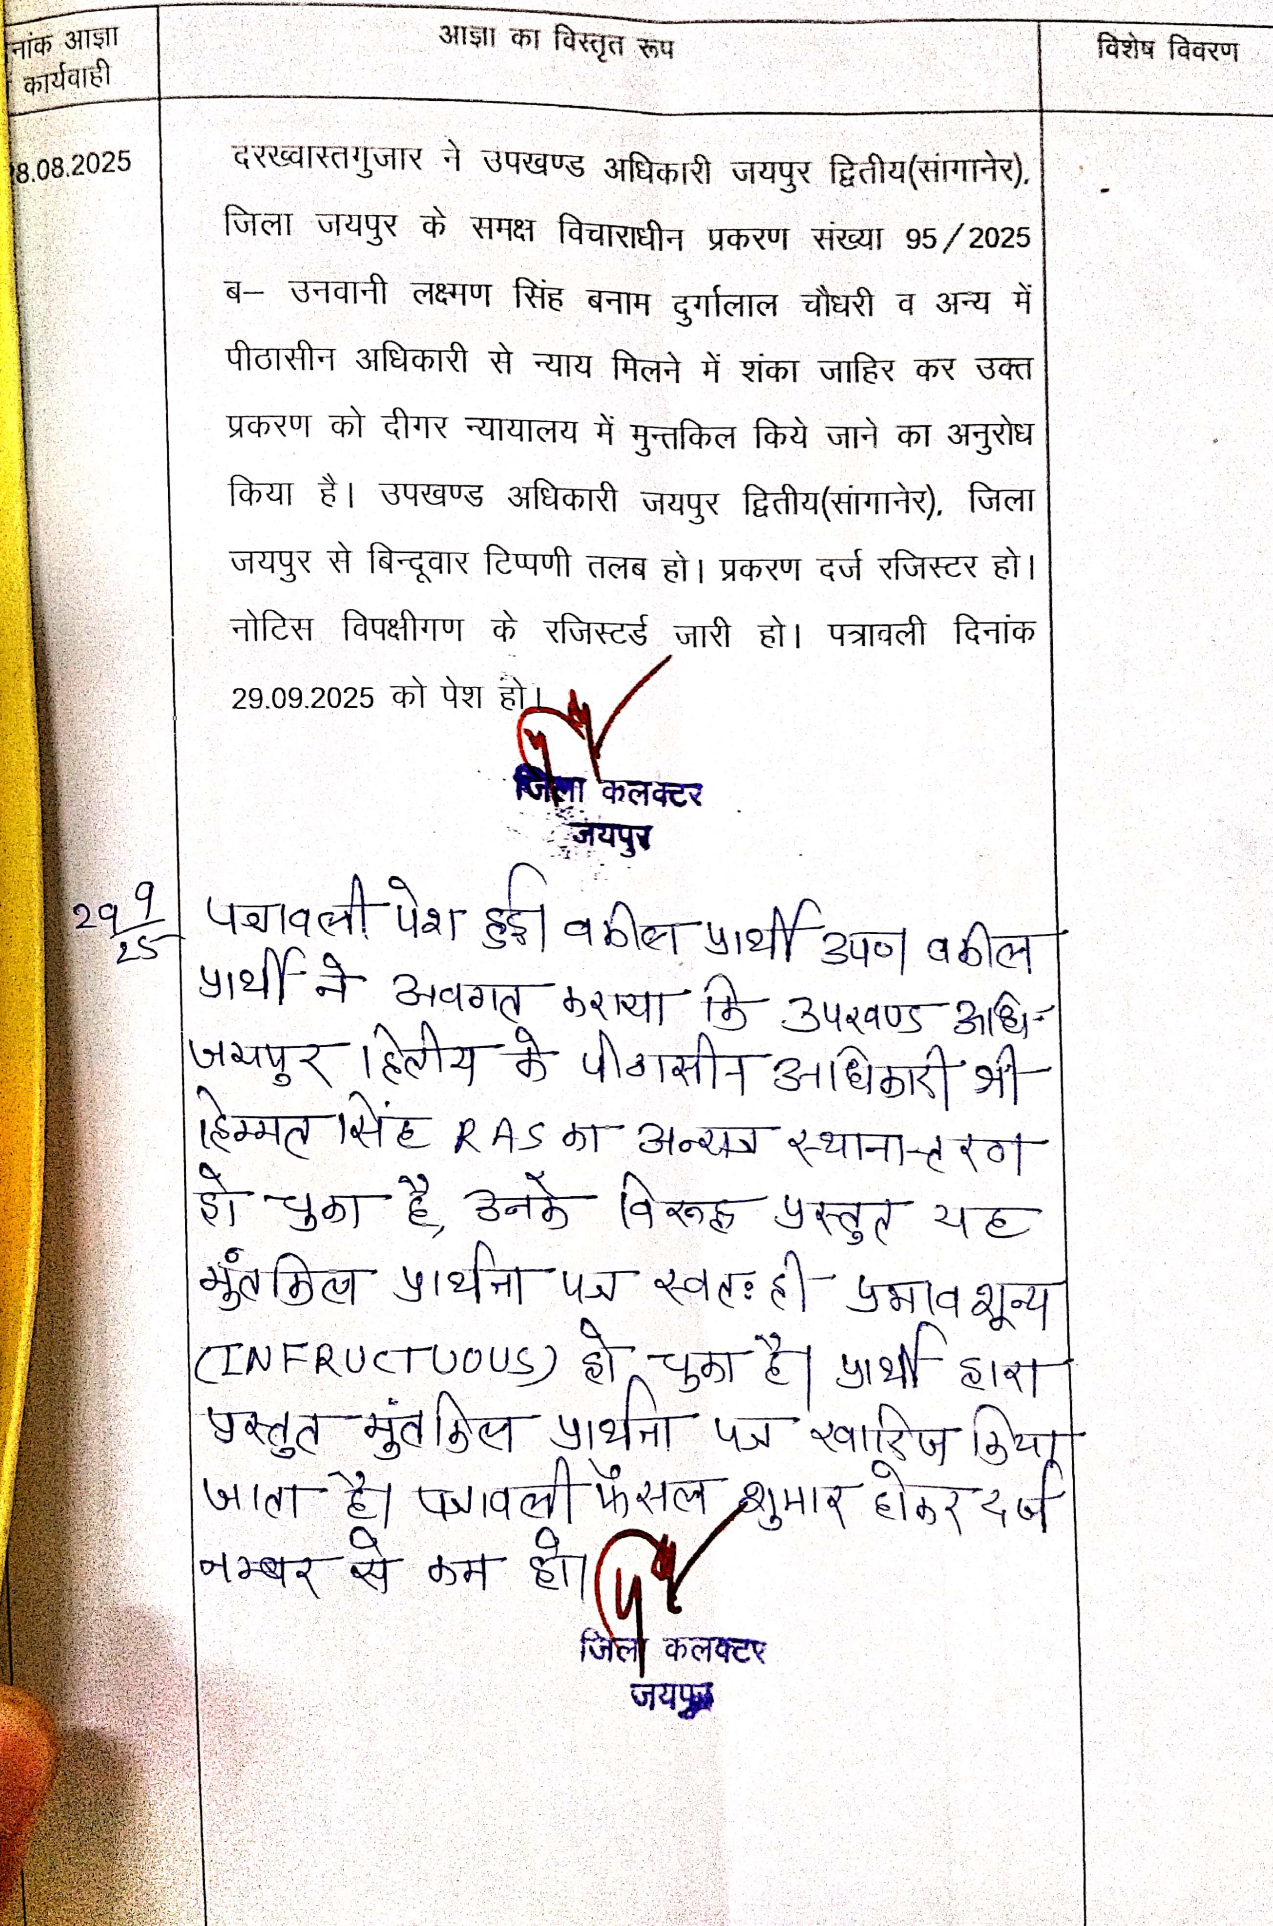 नांक आज्ञा
कार्यवाही
आज्ञा का विस्तृत रूप
विशेष विवरण
8.08.2025
दरख्वास्तगुजार ने उपखण्ड अधिकारी जयपुर द्वितीय(सांगानेर),
जिला जयपुर के समक्ष विचाराधीन प्रकरण संख्या 95/2025
ब– उनवानी लक्ष्मण सिंह बनाम दुर्गालाल चौधरी व अन्य में
पीठासीन अधिकारी से न्याय मिलने में शंका जाहिर कर उक्त
प्रकरण को दीगर न्यायालय में मुन्तकिल किये जाने का अनुरोध
किया है। उपखण्ड अधिकारी जयपुर द्वितीय(सांगानेर), जिला
जयपुर से बिन्दूवार टिप्पणी तलब हो। प्रकरण दर्ज रजिस्टर हो।
नोटिस विपक्षीगण के रजिस्टर्ड जारी हो। पत्रावली दिनांक
29.09.2025 को पेश हो।
जिला कलक्टर
जयपुर
29 9/25
पत्रावली पेश हुई। वकील प्रार्थी उप० वकील
प्रार्थी ने अवगत कराया कि उपखण्ड अधि-
जयपुर द्वितीय के पीठासीन अधिकारी श्री
हिम्मत सिंह RAS का अन्यत्र स्थानान्तरण
हो चुका है, उनके विरूद्ध प्रस्तुत यह
मुंतकिल प्रार्थना पत्र स्वतः ही प्रभाव शून्य
(INFRUCTUOUS) हो चुका है। प्रार्थी द्वारा
प्रस्तुत मुंतकिल प्रार्थना पत्र खारिज किया
जाता है। पत्रावली फैसल शुमार होकर दर्ज
नम्बर से कम हो।
जिला कलक्टर
जयपुर